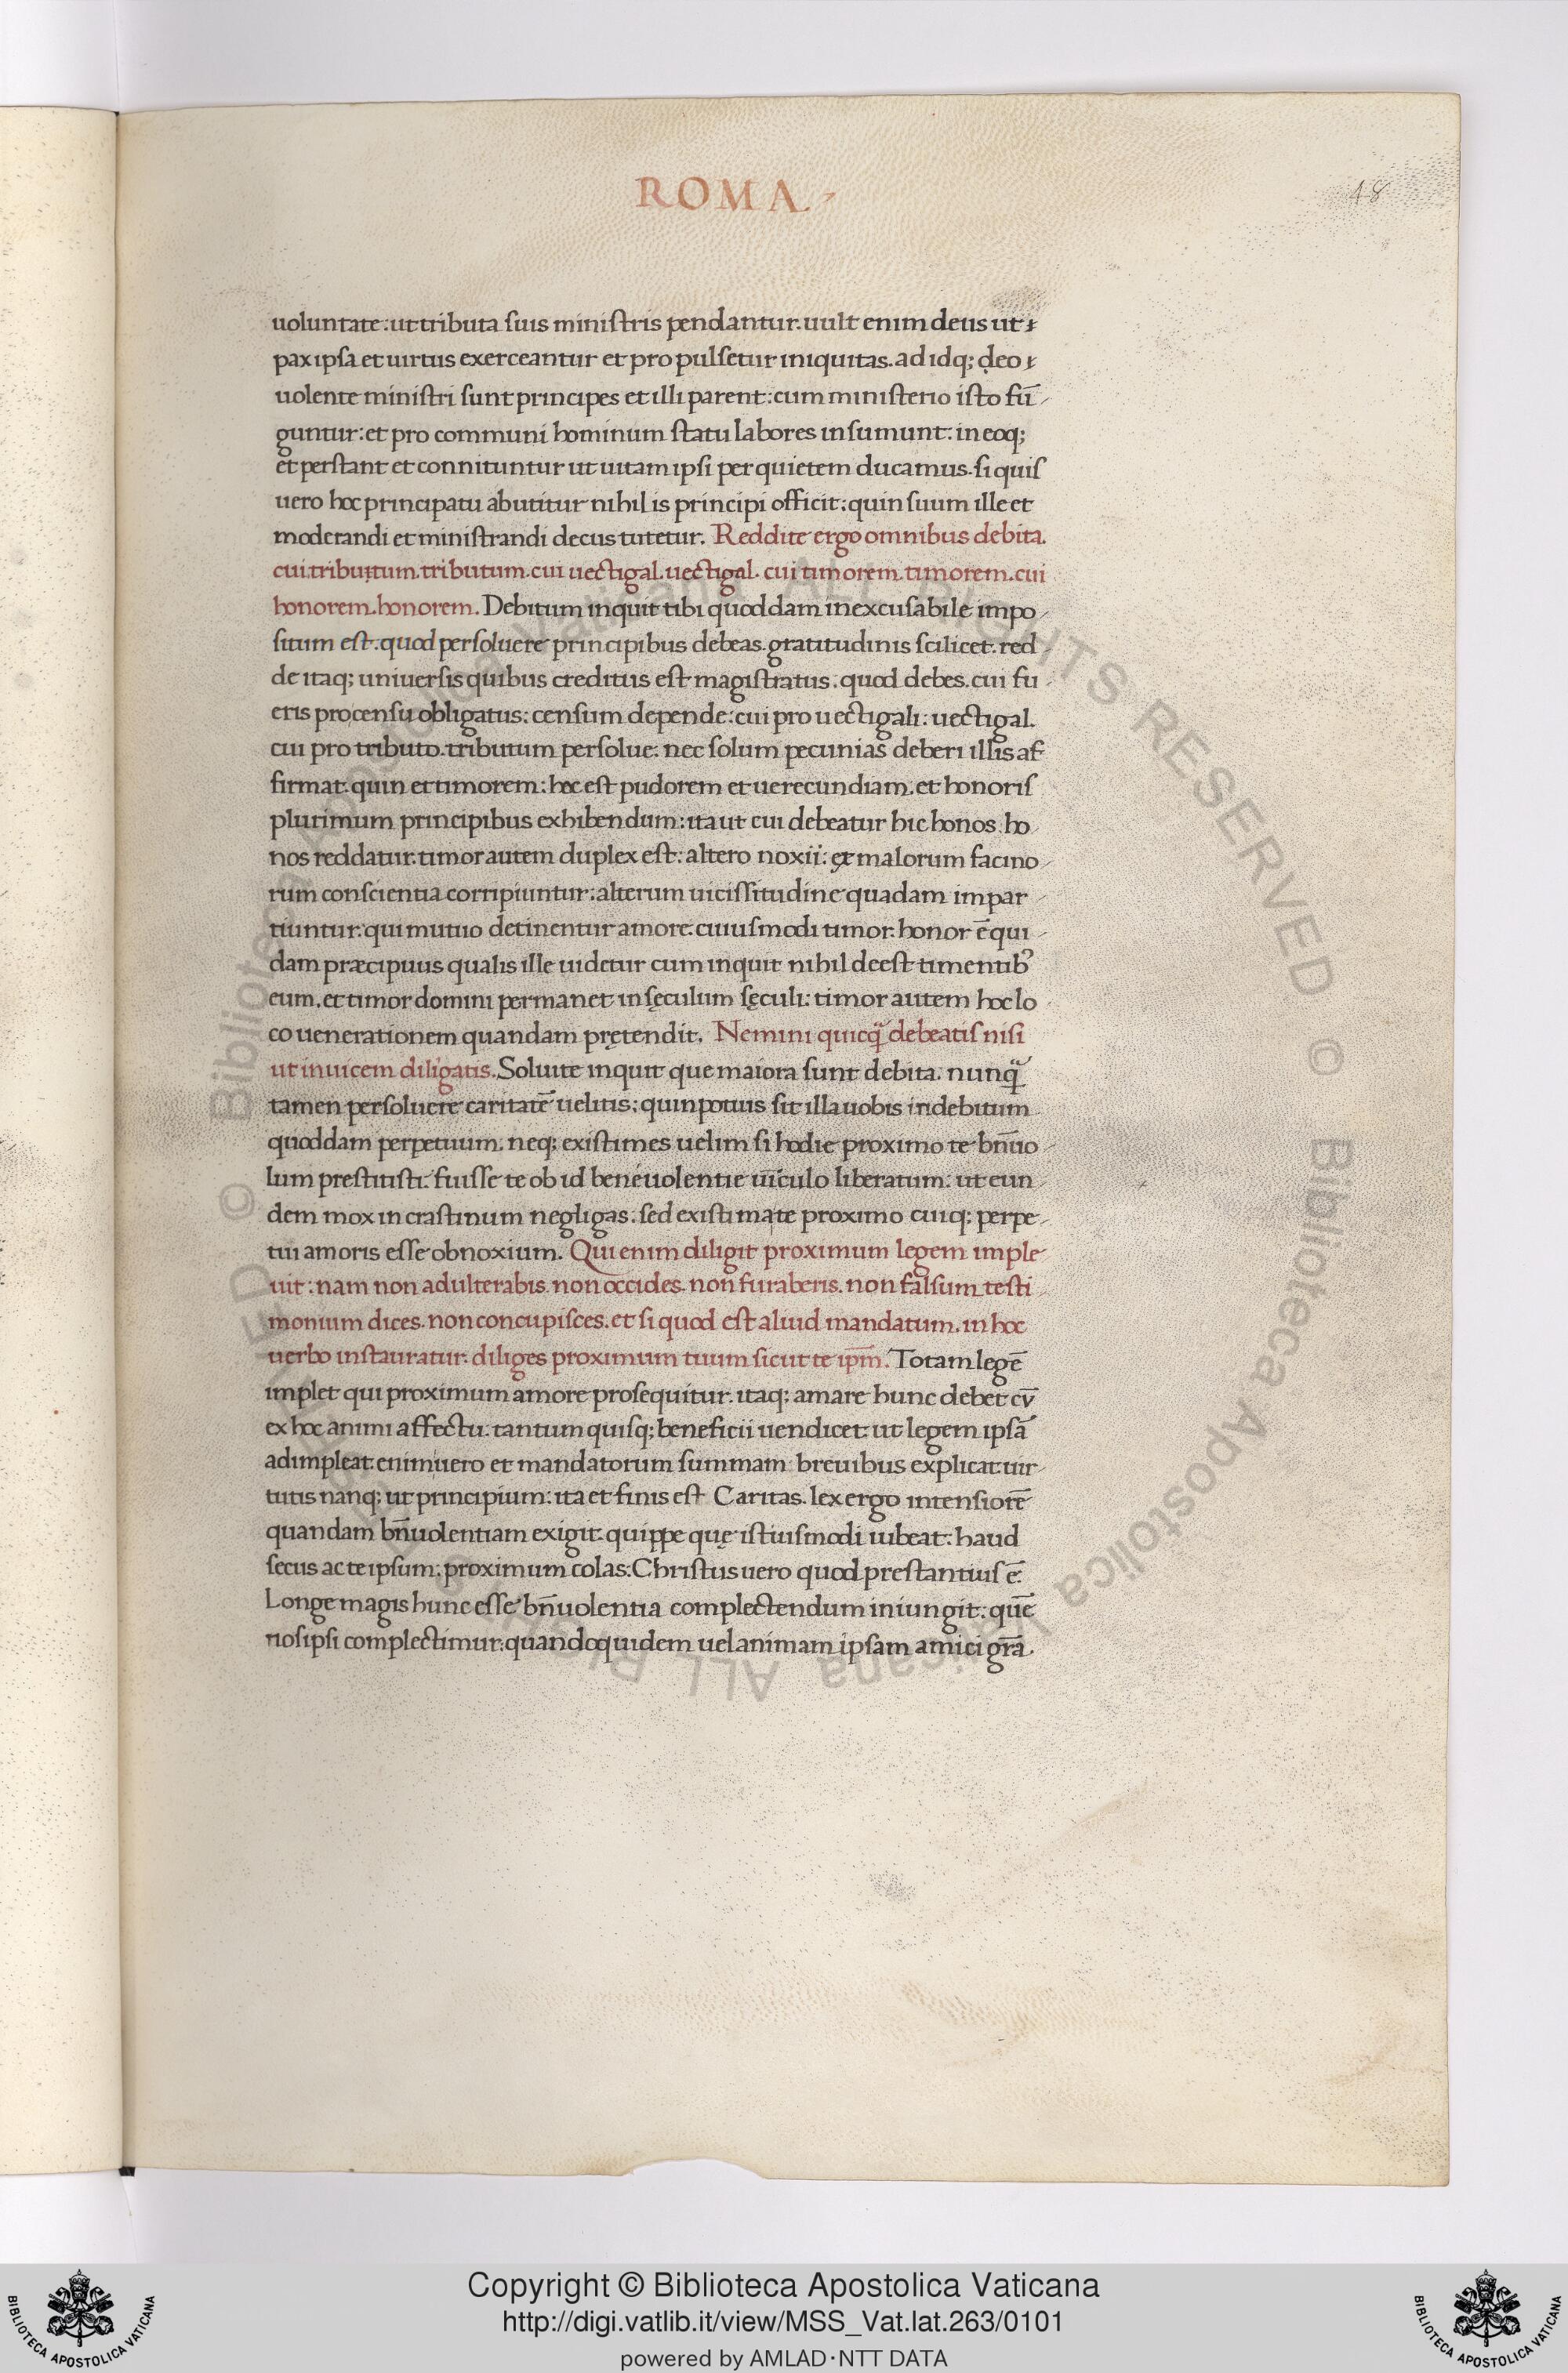 ROMA
48
uoluntate: ut tributa suis ministris pendantur. uult enim deus ut
pax ipsa et uirtus exerceantur et propulsetur iniquitas. ad idq; deo
uolente ministri sunt principes et illi parent: cum ministerio isto fū
guntur: et pro communi hominum statu labores insumunt: in eoq;
et perstant et connituntur ut uitam ipsi per quietem ducamus. si quis
uero hoc principatu abutitur nihil is principi officit: quin suum ille et
moderandi et ministrandi decus tutetur. Reddite ergo omnibus debita.
cui tributum. tributum. cui uectigal. uectigal. cui timorem. timorem. cui
honorem. honorem. Debitum inquit tibi quoddam inexcusabile impo
situm est: quod persoluere principibus debeas. gratitudinis scilicet. red
de itaq; uniuersis quibus creditus est magistratus. quod debes. cui fu
eris pro censu obligatus: censum depende: cui pro uectigali: uectigal.
cui pro tributo. tributum persolue: nec solum pecunias deberi illis af
firmat. quin et timorem: hoc est pudorem et uerecundiam. et honoris
plurimum principibus exhibendum: ita ut cui debeatur hic honos: ho
nos reddatur. timor autem duplex est: altero noxii: ex malorum facino
rum conscientia corripiuntur: alterum uicissitudine quadam impar
tiuntur: qui mutuo detinentur amore. cuiusmodi timor. honor ē qui
dam præcipuus qualis ille uidetur cum inquit nihil deest timentibꝰ
eum. et timor domini permanet in sęculum sęculi: timor autem hoc lo
co uenerationem quandam prętendit. Nemini quicq̃ debeatis nisi
ut inuicem diligatis. Soluite inquit que maiora sunt debita. nunq̃
tamen persoluere caritatē uelitis: quin potius sit illa uobis indebitum
quoddam perpetuum. neq; existimes uelim si hodie proximo te bn̄uo
lum prestitisti. fuisse te ob id beneuolentie uīculo liberatum: ut eun
dem mox in crastinum negligas: sed existimate proximo cuiq; perpe
tui amoris esse obnoxium. Qui enim diligit proximum legem imple
uit: nam non adulterabis. non occides. non furaberis. non falsum testi
monium dices. non concupisces. et si quod est aliud mandatum. in hoc
uerbo instauratur. diliges proximum tuum sicut te ip̄m. Totam legē
implet qui proximum amore prosequitur. itaq; amare hunc debet cū
ex hoc animi affectu: tantum quisq; beneficii uendicet: ut legem ipsā
adimpleat. enimuero et mandatorum summam breuibus explicat. uir
tutis nanq; ut principium: ita et finis est Caritas. lex ergo intensiorē
quandam bn̄uolentiam exigit. quippe quę istiusmodi iubeat: haud
secus ac te ipsum: proximum colas: Christus uero quod prestantius ē.
Longe magis hunc esse bn̄uolentia complectendum iniungit: quē
nos ipsi complectimur: quandoquidem uel animam ipsam amici gr̄a
Copyright © Biblioteca Apostolica Vaticana
http://digi.vatlib.it/view/MSS_Vat.lat.263/0101
powered by AMLAD·NTT DATA